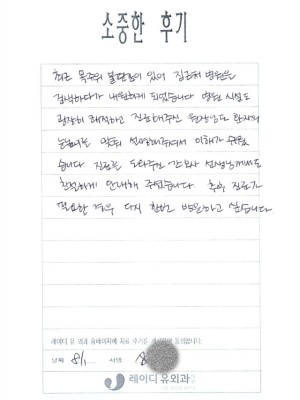 소중한 후기
최근 목주위 불편감이 있어 집근처 병원을
검색하다가 내원하게 되었습니다 병원 시설도
굉장히 쾌적하고 진료해주신 원장님도 환자의
눈높이를 맞춰 설명해주셔서 이해가 쉬웠
습니다 진료를 도와주신 간호사 선생님께서도
친절하게 안내해 주셨습니다 추후 진료가
필요한 경우 다시 한번 방문하고 싶습니다
레이디 유 외과 홈페이지에 치료 후기를 동의합니다.
날짜 8/1 서명
레이디유외과